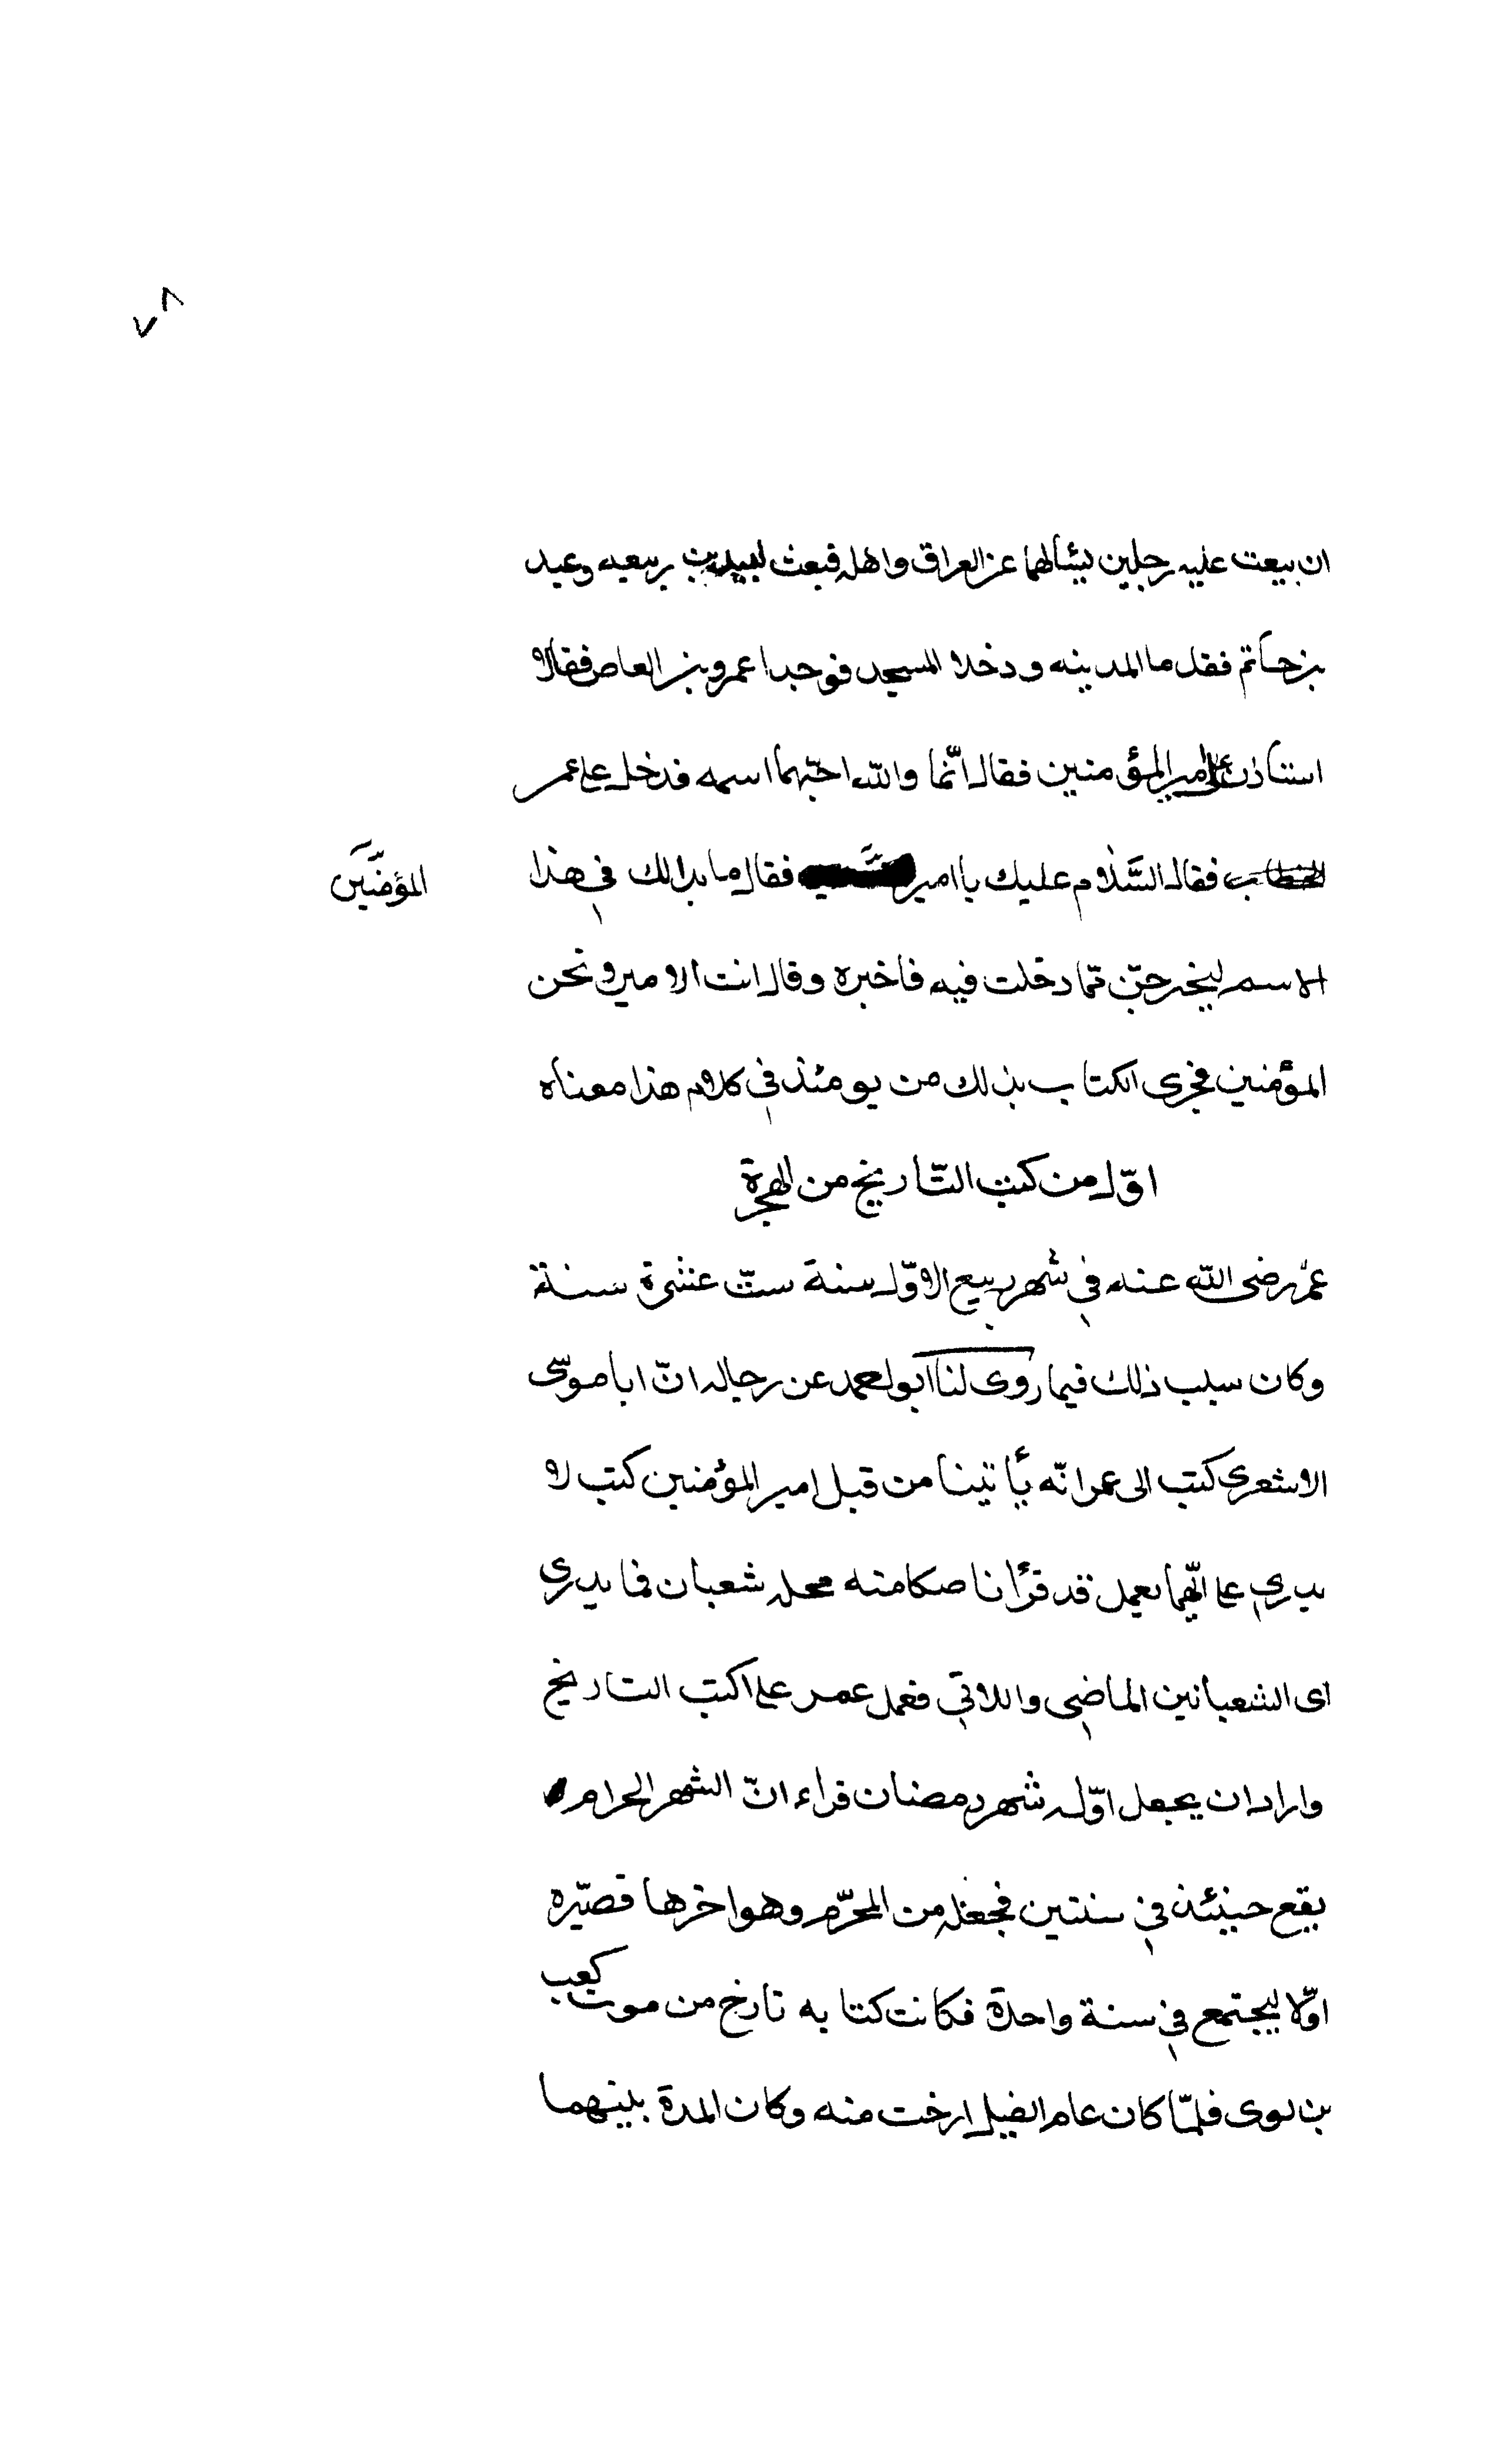 ٧٨
ان يبعث عليه رجلين يسألهما عن العراق واهله فبعث لبيد بن ربيعه وعبد
بن حاتم فقدما المدينه ودخلا المسجد فوجدا عمرو بن العاص فقالا
استأذن على امير المؤمنين فقال انّما والله احبّهما اسمه فدخل على عمر
فقال السَّلام عليك يا امير المؤمنين فقال ما بدا لك في هذا
الاسم ليخرجنّ ممّا دخلت فيه فاخبره وقال انت الامير ونحن
المؤمنين فجرى الكتاب بذلك من يومئذ في كلام هذا معناه
اوّل من كتب التّاريخ من الهجرة
عمر رضى الله عنه في شهر ربيع الاوّل سنة ستّ عشرة سنة
وكان سبب ذلك فيما روى لنا ابو احمد عن رجاله انّ ابا موسى
الاشعرى كتب الى عمر انّه يأتينا من قبل امير المؤمنين كتب لا
يدرى على ايّهما يعمل قد قرأنا صكا منه محله شعبان فما يدرى
اى الشعبانين الماضى واللاتي فعمل عمر على كتب التاريخ
واراد ان يجعل اوّله شهر رمضان فراء انّ الشهر الحرام
يقع حينئذ في سنتين فجعله من المحرّم وهو اخرها فصيّره
اوّلا ليجتمع في سنة واحدة فكانت كتابه تارخ من موت كعب
بن لوى فلمّا كان عام الفيل ارخت منه وكان المدة بينهما